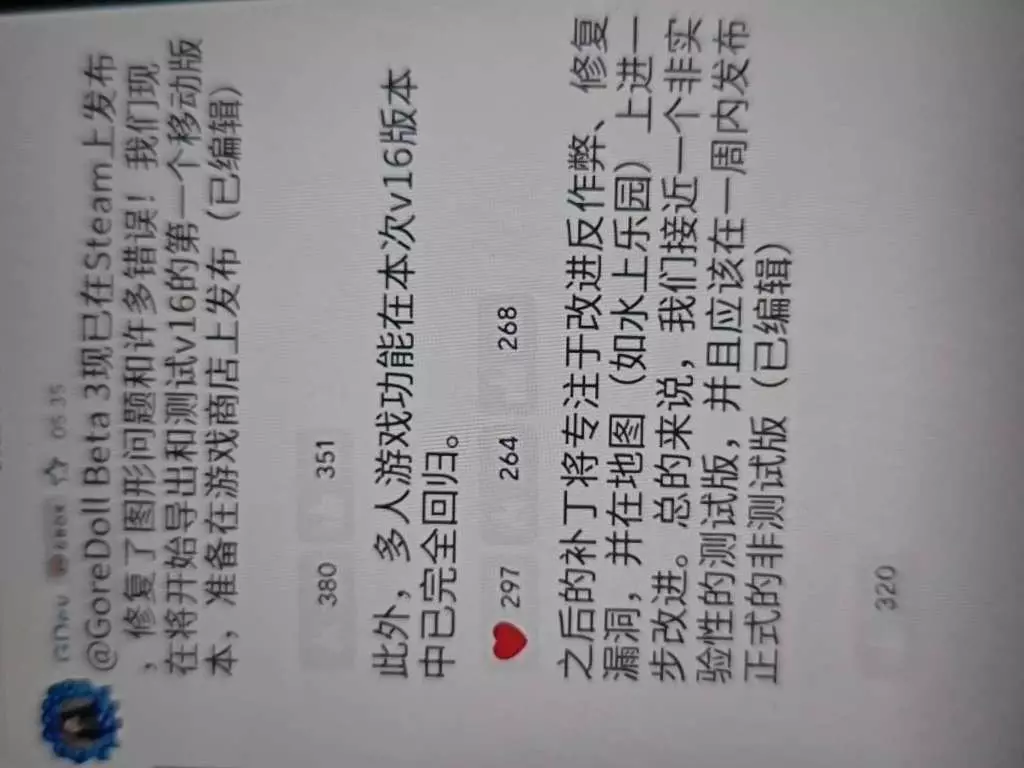 05:35
@GoreDoll Beta 3现已在Steam上发布
，修复了图形问题和许多错误！我们现
在将开始导出和测试v16的第一个移动版
本，准备在游戏商店上发布（已编辑）
380 351
此外，多人游戏功能在本次v16版本
中已完全回归。
297 264 268
之后的补丁将专注于改进反作弊、修复
漏洞，并在地图（如水上乐园）上进一
步改进。总的来说，我们接近一个非实
验性的测试版，并且应该在一周内发布
正式的非测试版（已编辑）
320